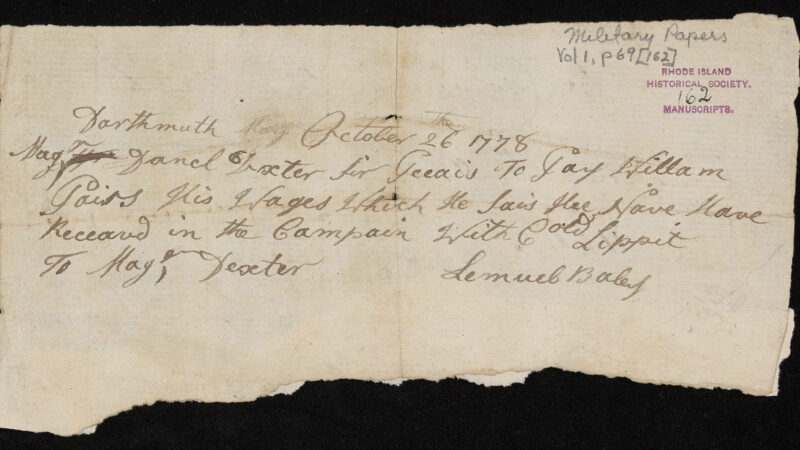 Military Papers
Vol 1, p 69 [162]
RHODE ISLAND
HISTORICAL SOCIETY.
162
MANUSCRIPTS.
Darthmuth October 26th 1778
Magr Danel Dexter Sir Pleais To Pay Willam
Pairs His Wages Which He Sais Hee Nave Have
Receaved in the Campain With Cold Lippit
To Magr Dexter Lemuel Baley